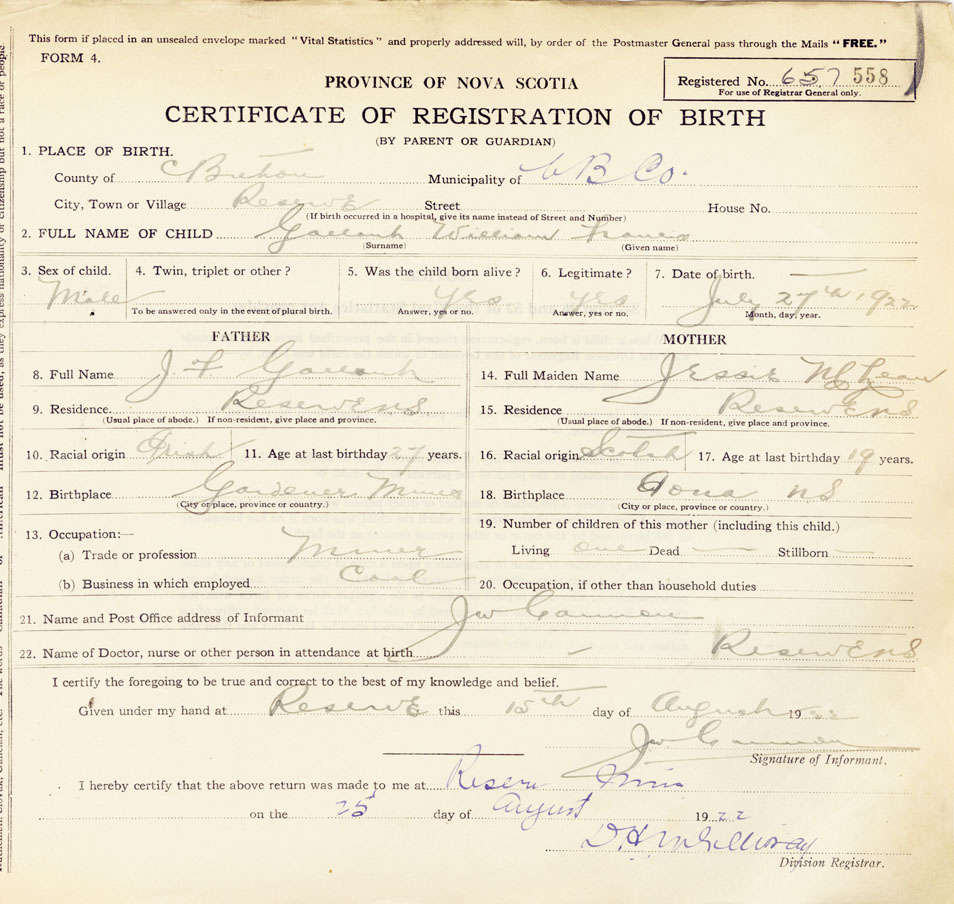 This form if placed in an unsealed envelope marked "Vital Statistics" and properly addressed will, by order of the Postmaster General pass through the Mails "FREE."
FORM 4.
PROVINCE OF NOVA SCOTIA
Registered No. 657 558
For use of Registrar General only.
CERTIFICATE OF REGISTRATION OF BIRTH
(BY PARENT OR GUARDIAN)
1. PLACE OF BIRTH.
County of C Breton Municipality of C B Co.
City, Town or Village Reserve Street House No.
(If birth occurred in a hospital, give its name instead of Street and Number)
2. FULL NAME OF CHILD Gallant William Francis
(Surname) (Given name)
3. Sex of child. 4. Twin, triplet or other? 5. Was the child born alive? 6. Legitimate? 7. Date of birth.
Male yes yes July 27th 1922
To be answered only in the event of plural birth. Answer, yes or no. Answer, yes or no. Month, day, year.
FATHER MOTHER
8. Full Name J. F Gallant 14. Full Maiden Name Jessie McLean
9. Residence Reserve NS 15. Residence Reserve NS
(Usual place of abode.) If non-resident, give place and province. (Usual place of abode.) If non-resident, give place and province.
10. Racial origin Irish 11. Age at last birthday 27 years. 16. Racial origin Scotch 17. Age at last birthday 19 years.
12. Birthplace Gardener Mines 18. Birthplace Iona NS
(City or place, province or country.) (City or place, province or country.)
13. Occupation:— 19. Number of children of this mother (including this child.)
(a) Trade or profession Miner Living one Dead — Stillborn —
(b) Business in which employed Coal 20. Occupation, if other than household duties
21. Name and Post Office address of Informant J W
22. Name of Doctor, nurse or other person in attendance at birth – Reserve NS
I certify the foregoing to be true and correct to the best of my knowledge and belief.
Given under my hand at Reserve this 15th day of August 1922
J W
Signature of Informant.
I hereby certify that the above return was made to me at Reserve Mines
on the 25 day of August 1922
D. H McGillivray
Division Registrar.